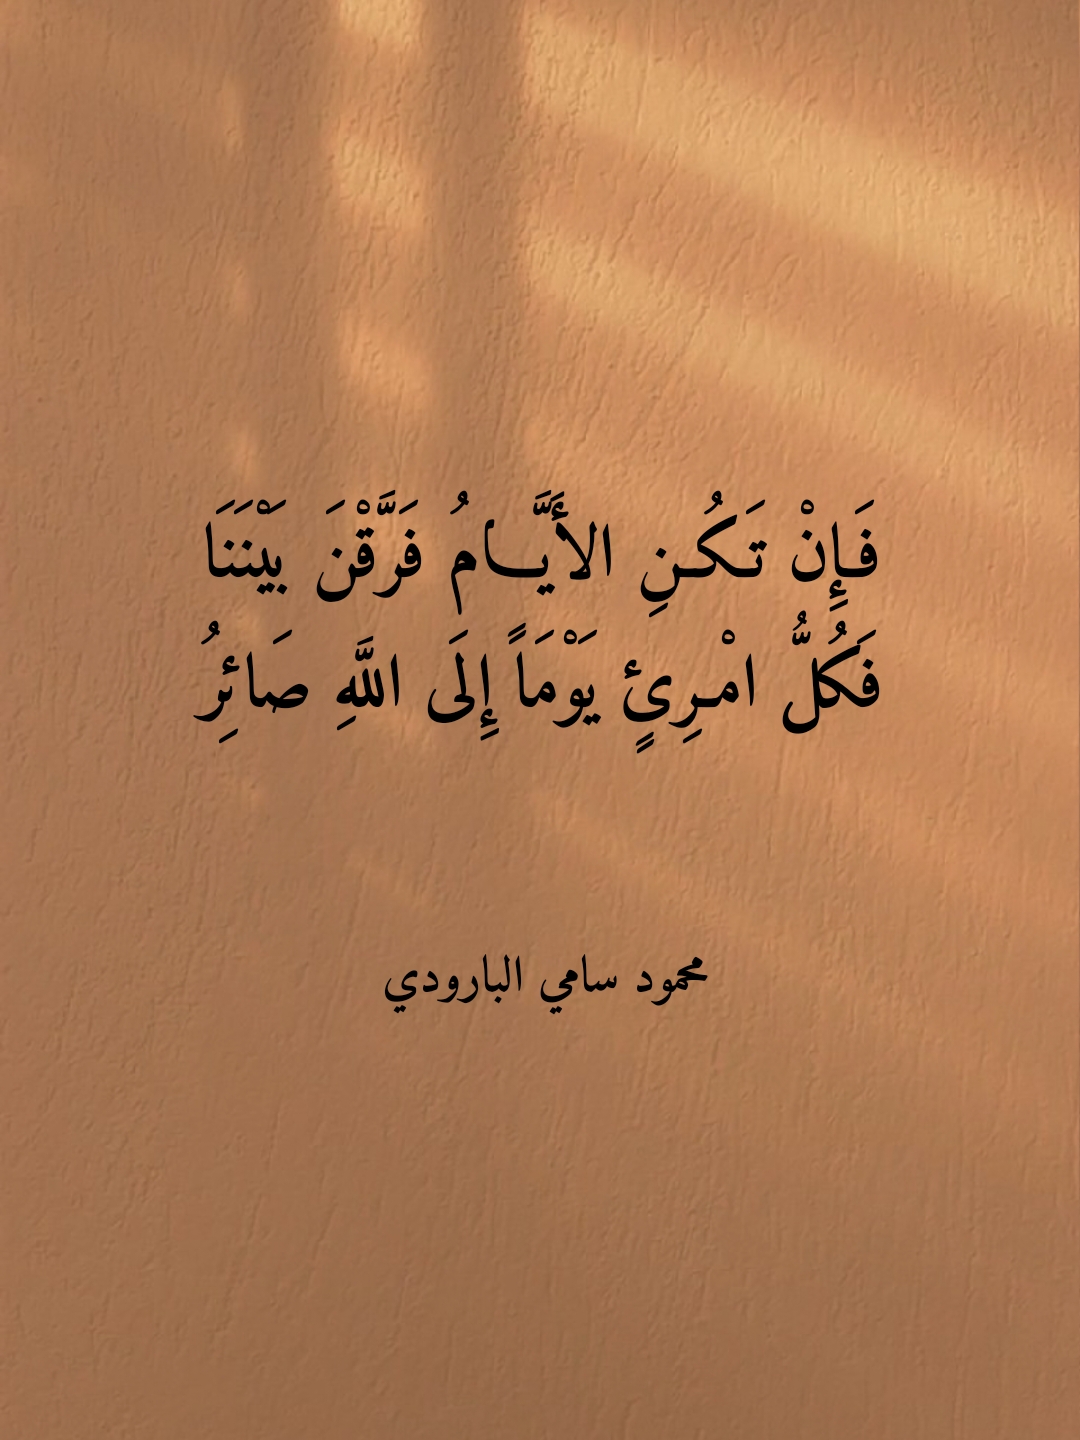 فَإِنْ تَـكُـنِ الأَيَّـــامُ فَرَّقْنَ بَيْنَنَا
فَكُلُّ امْـرِئٍ يَوْمَاً إِلَى اللَّهِ صَائِرُ
محمود سامي البارودي